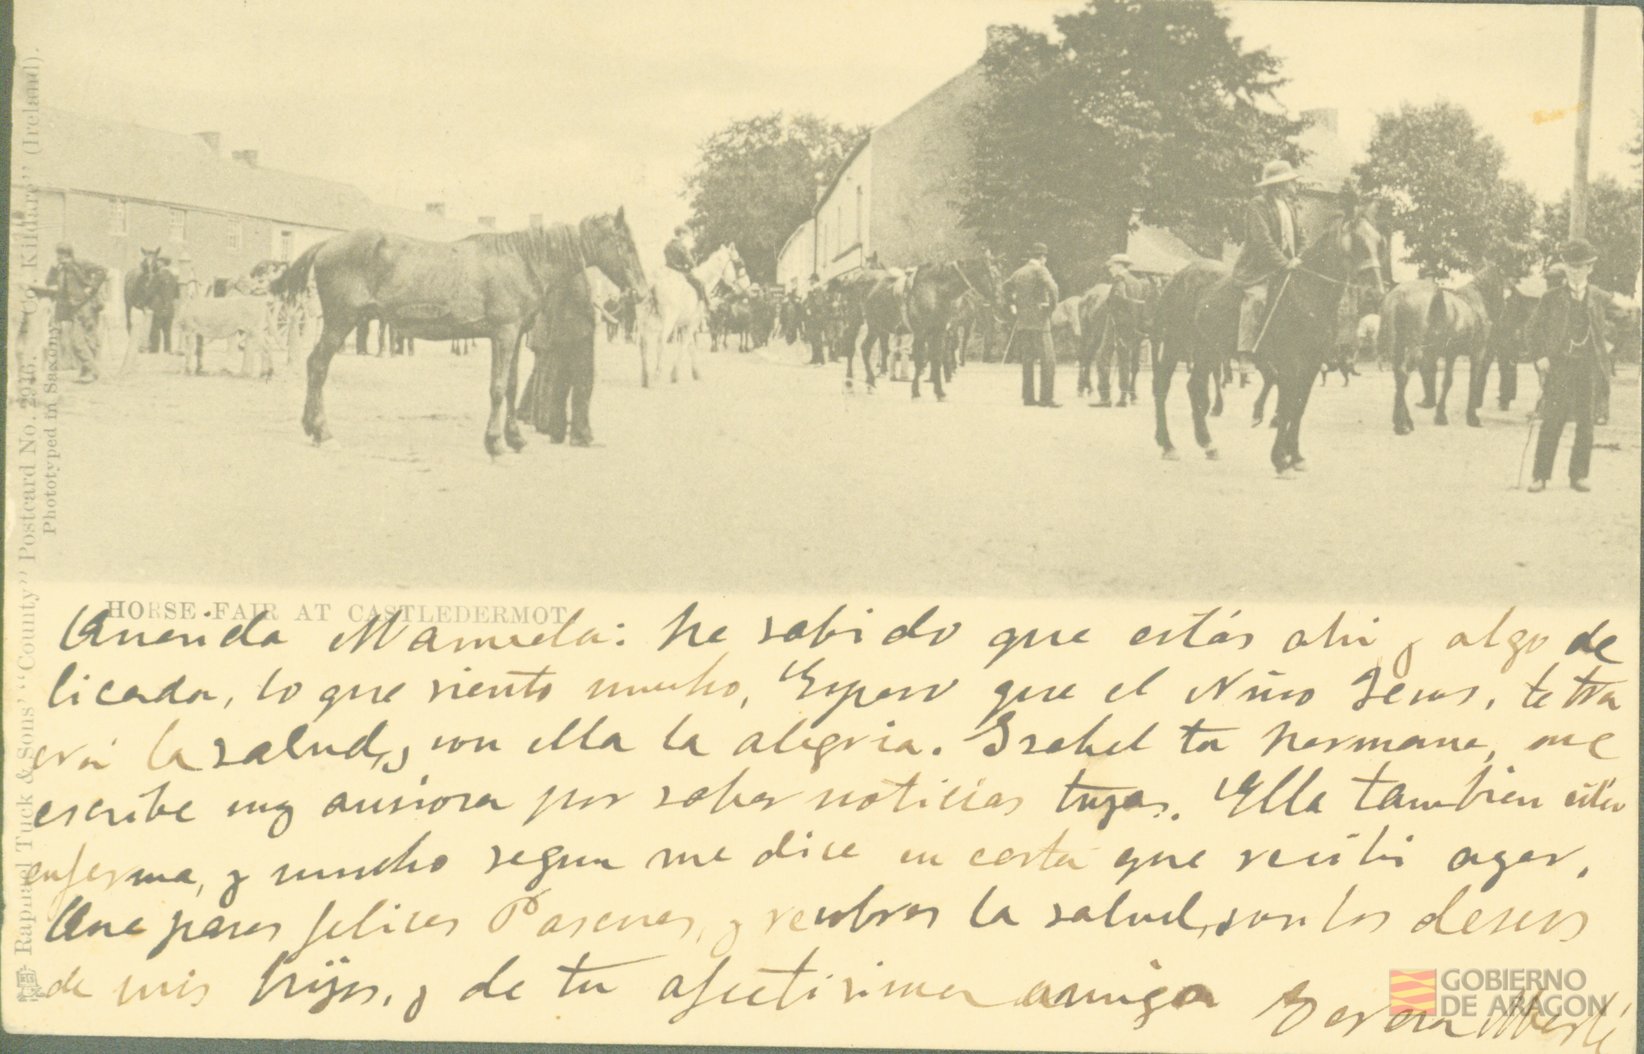 Raphael Tuck & Sons' "County" Postcard No. 2916. (Co. Kildare) (Ireland).
Phototyped in Saxony
HORSE FAIR AT CASTLEDERMOT
Querida Manuela: he sabido que estás ahi y algo de
licada, lo que siento mucho, Espero que el Niño Jesus, te tra
erá la salud, y con ella la alegria. Isabel tu hermana, me
escribe muy ansiosa por saber noticias tuyas. Ella tambien está
enferma, y mucho segun me dice en carta que recibi ayer.
Que pases felices Pascuas, y recobres la salud, son los deseos
de mis hijos, y de tu afectisima amiga
Teresa
GOBIERNO
DE ARAGON